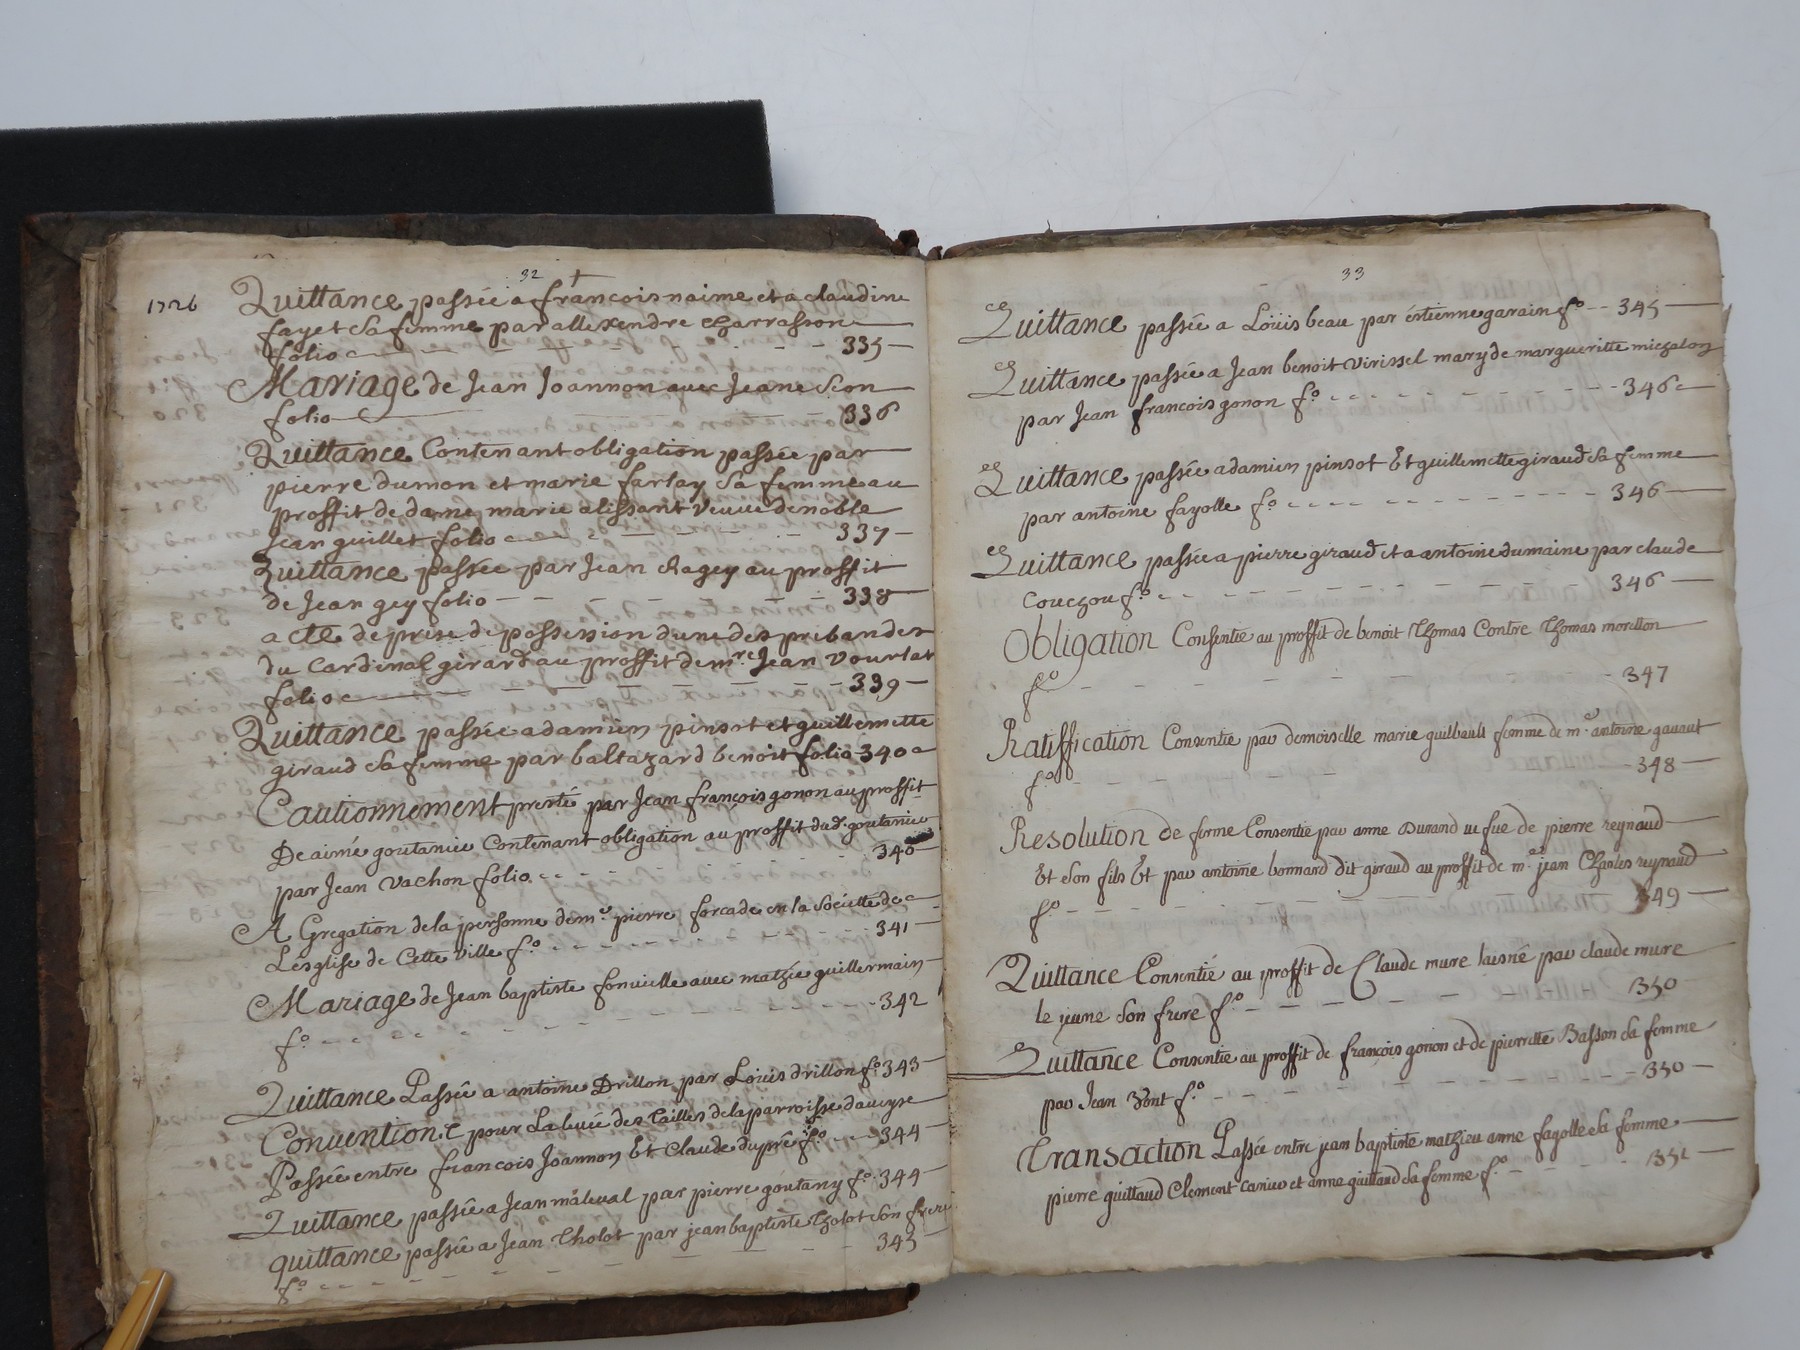 32
1726
Quittance passée a francois naime et a claudine
fayet sa femme par allexendre charrasson
folio 335
Mariage de Jean Joannon avec Jeane Seon
folio 336
Quittance Contenant obligation passée par
pierre dumon et marie farlay sa femme au
proffit de dame marie alissant veuve de noble
Jean guillet folio 337
Quittance passée par Jean chagey au proffit
de Jean gey folio 338
acte de prise de possession dune des prebandes
du Cardinal girard au proffit de mre Jean vourlat
folio 339
Quittance passée a damien pinsot et guillemette
giraud sa femme par baltazard benoit folio 340
Cautionnement presté par Jean françois gonon au proffit
De aimé goutanier Contenant obligation au proffit dud. goutanier
par Jean vachon folio 340
A Gregation de la personne de me pierre forcade en la Societte de
Lesglise de Cette ville fo 341
Mariage de Jean baptiste fonvielle avec mathie guillermain
fo 342
Quittance Passée a antoine Drillon par Loüis drillon fo 343
Convention pour La levée des tailles de la parroisse daveyse
Passée entre francois Joannon Et Claude dupré fo 344
Quittance passée a Jean maleval par pierre goutany fo 344
quittance passée a Jean Tholot par jean baptiste Tholot son frere
fo 345
33
Quittance passée a Loüis beau par estienne garain fo 345
Quittance passée a Jean benoit virissel mary de margueritte michalon
par Jean francois gonon fo 346
Quittance passée a damien pinsot Et guillemette giraud sa femme
par antoine fayolle fo 346
Quittance passée a pierre giraud et a antoine dumaine par claude
Couchou fo 346
Obligation Consentie au proffit de benoit Thomas Contre Thomas morellon
fo 347
Ratiffication Consentie par demoiselle marie guilbault femme de me antoine gavaut
fo 348
Resolution de ferme Consentie par anne Durand vefue de pierre reynaud
Et son fils Et par antoine bonnard dit giraud au proffit de me jean Charles reynaud
fo 349
Quittance Consentie au proffit de Claude mure laisné par claude mure
le jeune son frere fo 350
Quittance Consentie au proffit de francois gonon et de pierrette Basson sa femme
par Jean Pont fo 350
Transaction Passée entre jean baptiste mathieu anne fayolle sa femme
pierre guillaud Clement canier et anne guillaud sa femme fo 351